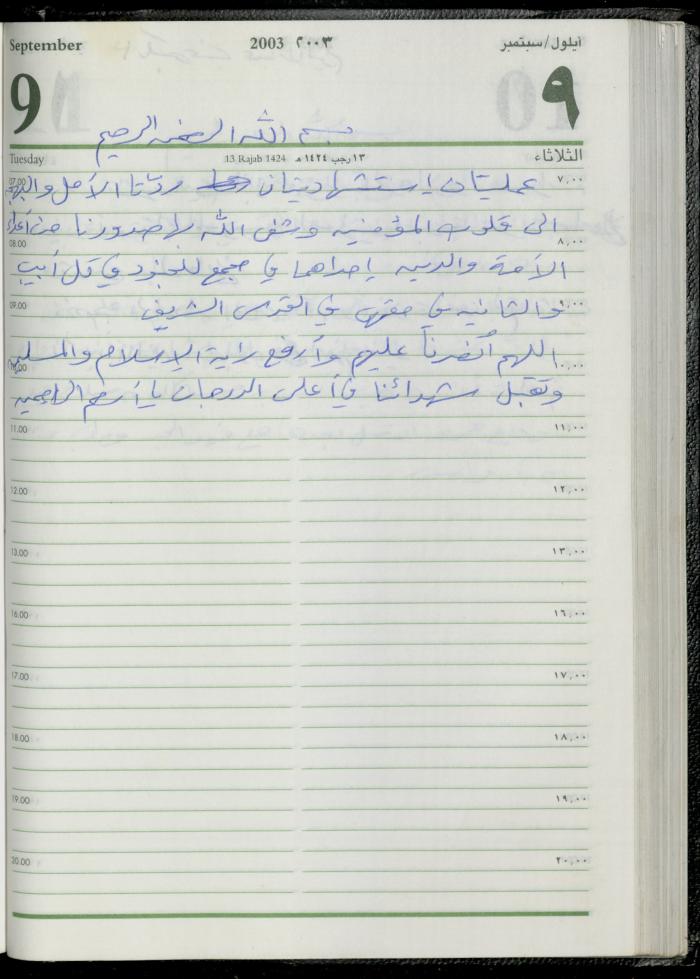 September 2003 ٢٠٠٣ أيلول/سبتمبر
9 ٩
بسم الله الرحمن الرحيم
Tuesday 13 Rajab 1424 ١٣ رجب ١٤٢٤ هـ الثلاثاء
07.00 ٧,٠٠
عمليتان إستشهاديتان ردّتا الأمل والبهجة
الى قلوب المؤمنين وشفى الله بها صدورنا من أعداء
08.00 ٨,٠٠
الأمة والدين إحداهما في مجمع للجنود في تل أبيب
09.00 ٩,٠٠
والثانية في مقهى في القدس الشريف
اللهم أنصرنا عليهم وأرفع راية الإسلام والمسلمين
١٠,٠٠
وتقبل شهدائنا في أعلى الدرجات يا أرحم الراحمين
11.00 ١١,٠٠
12.00 ١٢,٠٠
13.00 ١٣,٠٠
16.00 ١٦,٠٠
17.00 ١٧,٠٠
18.00 ١٨,٠٠
19.00 ١٩,٠٠
20.00 ٢٠,٠٠